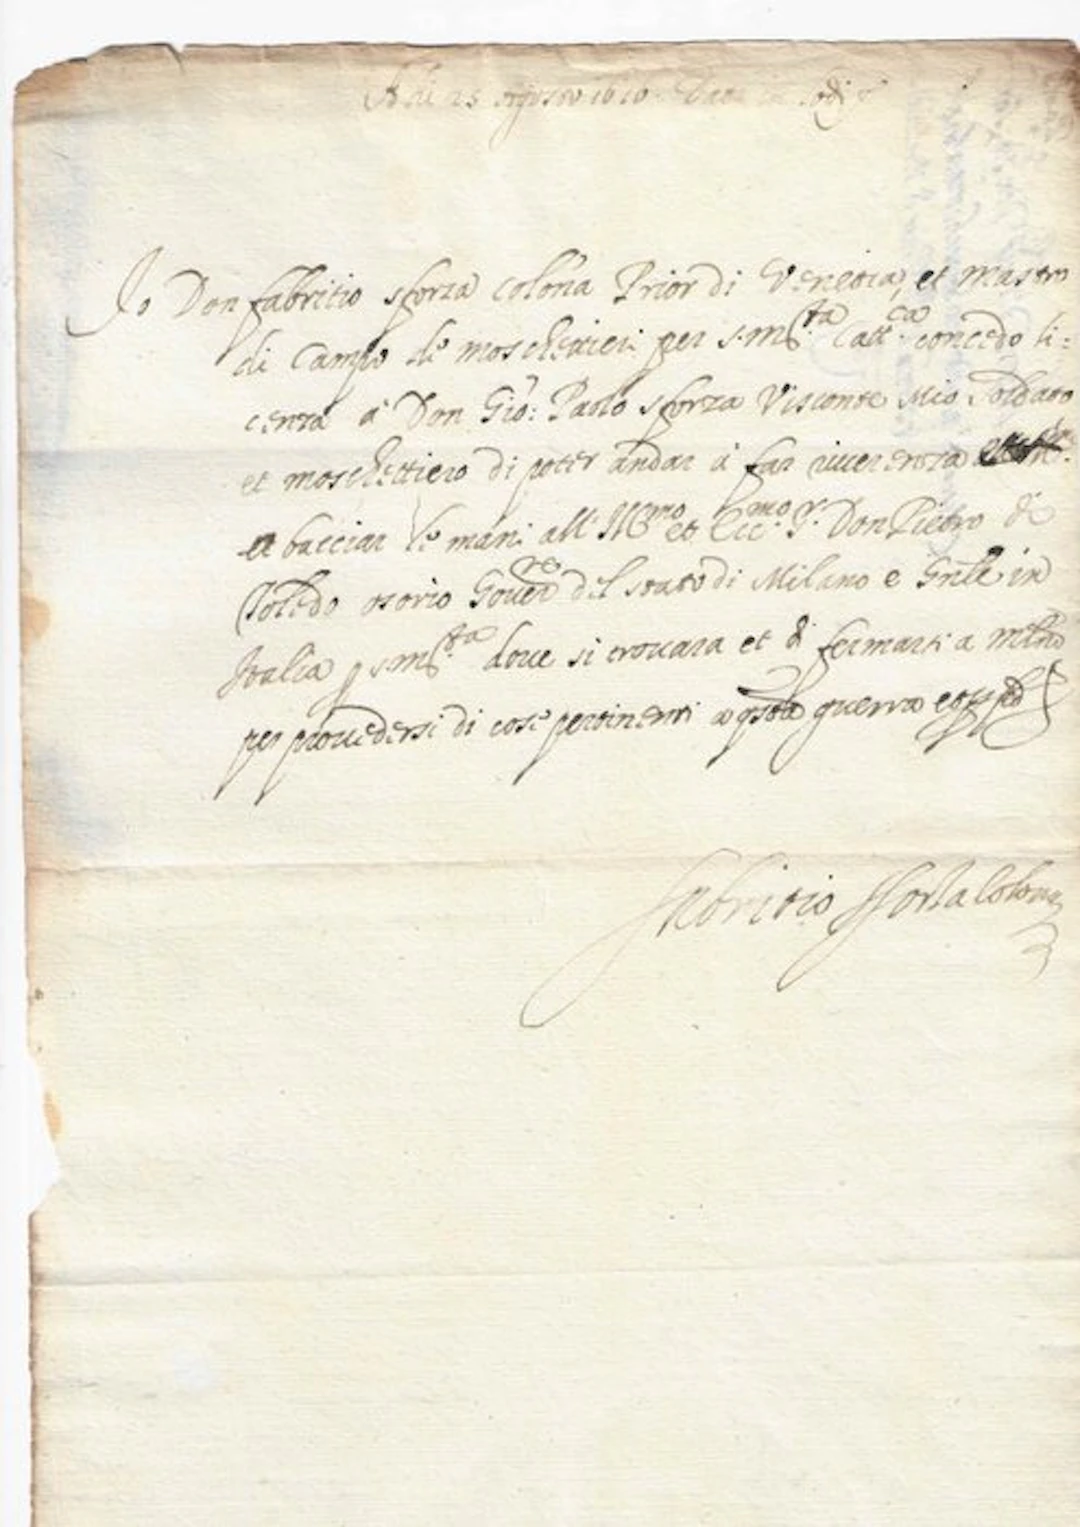 Adi 25 Agosto 1616
Io Don fabritio sforza Colona Prior di Venetia, et mastro
di Campo de moschetieri per s. M.ta Catt.ca concedo li=
cenza a Don Gio: Paolo sforza Visconte Mio Soldato
et moschettiero di poter andar a far riuerenza
et bacciar le mani all' Ill.mo et Ecc.mo S.r Don Pietro di
Toledo osorio Gouer.re del stato di Milano e Gnle in
Italia p s. M.ta doue si trouara et di fermarsi a Mlno
per prouedersi di cose pertinenti a qsta guerra
fabritio sforza Colona